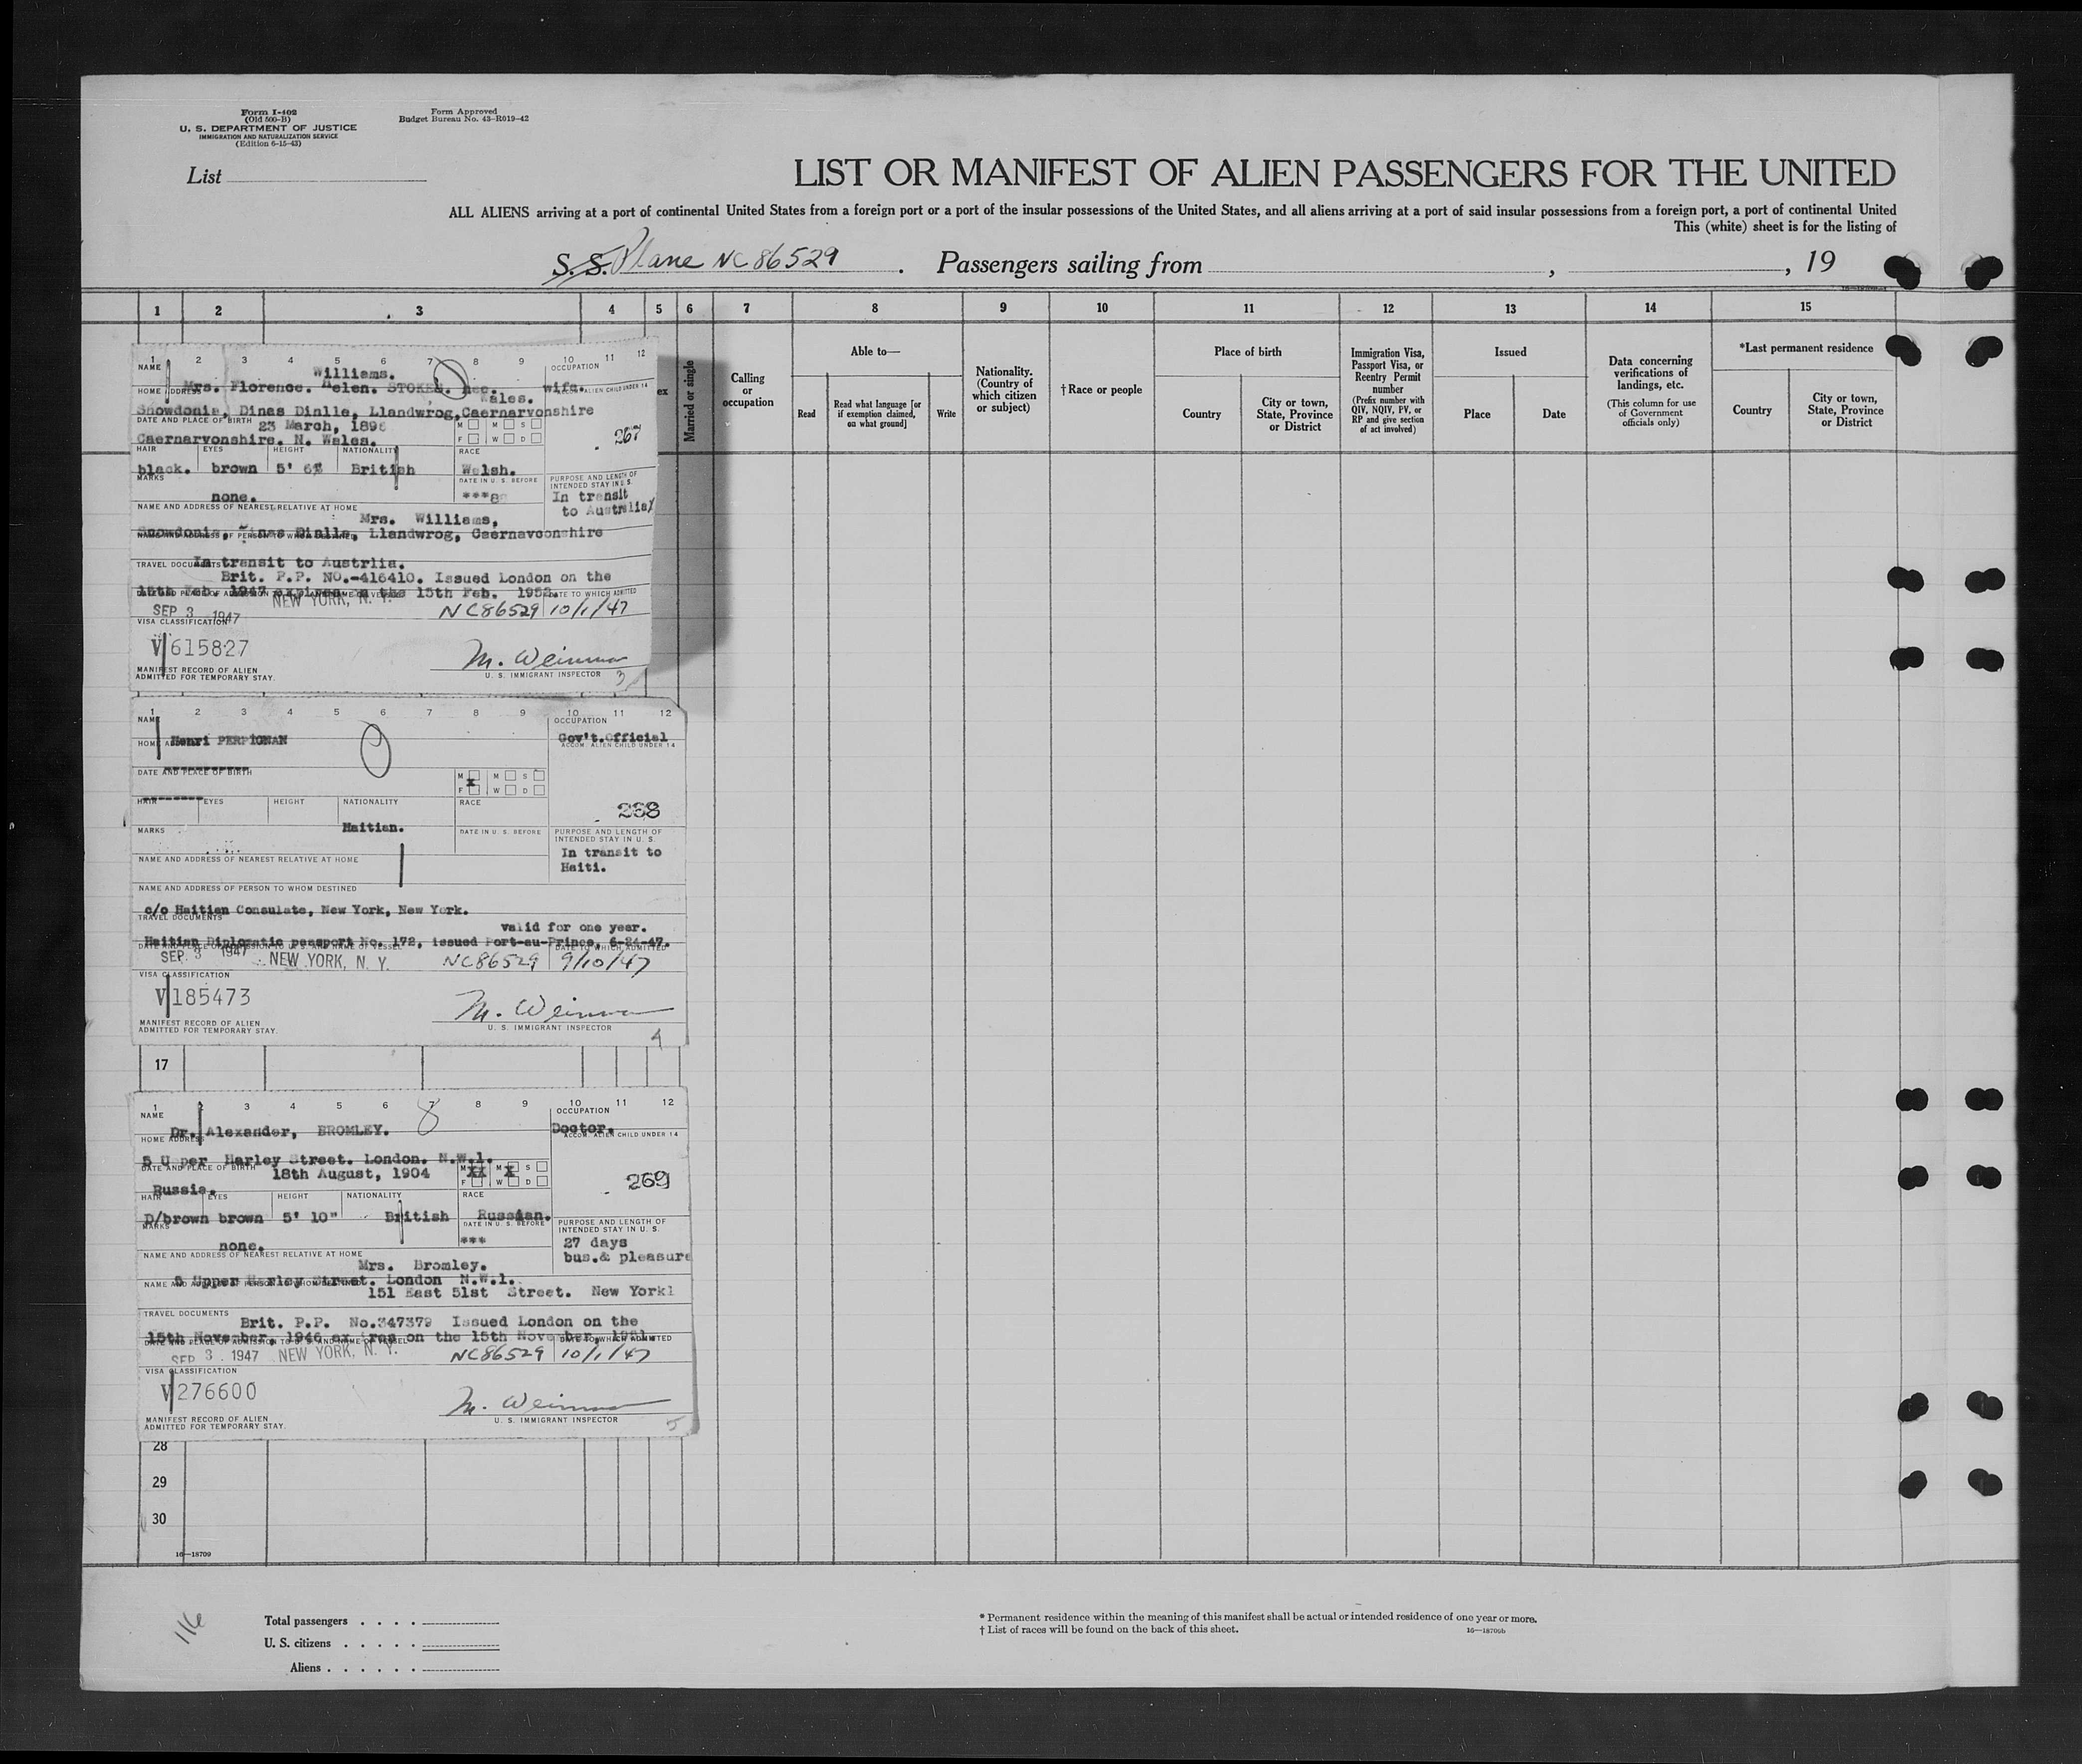 Form I-402
(Old 500-B)
U. S. DEPARTMENT OF JUSTICE
IMMIGRATION AND NATURALIZATION SERVICE
(Edition 6-15-43)
Form Approved
Budget Bureau No. 43-R019-42
List
LIST OR MANIFEST OF ALIEN PASSENGERS FOR THE UNITED
ALL ALIENS arriving at a port of continental United States from a foreign port or a port of the insular possessions of the United States, and all aliens arriving at a port of said insular possessions from a foreign port, a port of continental United
This (white) sheet is for the listing of
S. S. Plane NC86529 . Passengers sailing from , , 19
1 2 3 4 5 6 7 8 9 10 11 12 13 14 15
ex
Married or single
Calling
or
occupation
Able to—
Read
Read what language [or
if exemption claimed,
on what ground]
Write
Nationality.
(Country of
which citizen
or subject)
† Race or people
Place of birth
Country
City or town,
State, Province
or District
Immigration Visa,
Passport Visa, or
Reentry Permit
number
(Prefix number with
QIV, NQIV, PV, or
RP and give section
of act involved)
Issued
Place
Date
Data concerning
verifications of
landings, etc.
(This column for use
of Government
officials only)
*Last permanent residence
Country
City or town,
State, Province
or District
1 2 3 4 5 6 7 8 9 10 11 12
NAME
Williams.
OCCUPATION
Mrs. Florence. Helen. STOKES. nee.
wife.
HOME ADDRESS
ALIEN CHILD UNDER 14
Wales.
Snowdonia, Dinas Dinlle, Llandwrog, Caernarvonshire
DATE AND PLACE OF BIRTH
23 March, 189
M M S
F W D
Caernarvonshire. N. Wales.
267
HAIR EYES HEIGHT NATIONALITY RACE
black. brown 5' 6 British Welsh.
MARKS
DATE IN U. S. BEFORE
PURPOSE AND LENGTH OF
INTENDED STAY IN U. S.
none.
***8
In transit
to Australia/
NAME AND ADDRESS OF NEAREST RELATIVE AT HOME
Mrs. Williams,
Snowdonia, Dinas Dinlle, Llandwrog, Caernavoonshire
NAME AND ADDRESS OF PERSON TO WHOM DESTINED
In transit to Austrlia.
TRAVEL DOCUMENTS
Brit. P.P. NO.-416410. Issued London on the
15th Feb. 1947 expires on the 15th Feb. 1952.
DATE TO WHICH ADMITTED
SEP 3 1947 NEW YORK, N. Y. NC86529 10/1/47
VISA CLASSIFICATION
V 615827
M. Weinman
MANIFEST RECORD OF ALIEN
ADMITTED FOR TEMPORARY STAY.
U. S. IMMIGRANT INSPECTOR
3
1 2 3 4 5 6 7 8 9 10 11 12
NAME
OCCUPATION
Henri PERPIGNAN
Gov't.Official
HOME ADDRESS
ACCOM. ALIEN CHILD UNDER 14
DATE AND PLACE OF BIRTH
M x M S
F W D
HAIR EYES HEIGHT NATIONALITY RACE
268
Haitian.
MARKS
DATE IN U. S. BEFORE
PURPOSE AND LENGTH OF
INTENDED STAY IN U. S.
In transit to
Haiti.
NAME AND ADDRESS OF NEAREST RELATIVE AT HOME
NAME AND ADDRESS OF PERSON TO WHOM DESTINED
c/o Haitian Consulate, New York, New York.
TRAVEL DOCUMENTS
valid for one year.
Haitian Diplomatic passport No. 172, issued Port-au-Prince, 6-24-47.
DATE AND PLACE OF ADMISSION TO U. S. AND NAME OF VESSEL
DATE TO WHICH ADMITTED
SEP. 3 1947 NEW YORK, N. Y. NC86529 9/10/47
VISA CLASSIFICATION
V 185473
M. Weinman
MANIFEST RECORD OF ALIEN
ADMITTED FOR TEMPORARY STAY.
U. S. IMMIGRANT INSPECTOR
4
17
1 2 3 4 5 6 7 8 9 10 11 12
NAME
OCCUPATION
Dr. Alexander, BROMLEY.
Doctor.
HOME ADDRESS
ACCOM. ALIEN CHILD UNDER 14
5 Upper Harley Street. London. N.W.1.
DATE AND PLACE OF BIRTH
18th August, 1904
M XX M X S
F W D
Russia.
269
HAIR EYES HEIGHT NATIONALITY RACE
D/brown brown 5' 10" British Russian.
MARKS
DATE IN U. S. BEFORE
PURPOSE AND LENGTH OF
INTENDED STAY IN U. S.
none.
***
27 days
bus.& pleasure
NAME AND ADDRESS OF NEAREST RELATIVE AT HOME
Mrs. Bromley.
5 Upper Harley Street. London N.W.1.
NAME AND ADDRESS OF PERSON TO WHOM DESTINED
151 East 51st Street. New York1
TRAVEL DOCUMENTS
Brit. P.P. No.347379 Issued London on the
15th November, 1946 expires on the 15th November, 1951.
DATE AND PLACE OF ADMISSION TO U. S. AND NAME OF VESSEL
DATE TO WHICH ADMITTED
SEP 3 . 1947 NEW YORK, N. Y. NC86529 10/1/47
VISA CLASSIFICATION
V 276600
M. Weinman
MANIFEST RECORD OF ALIEN
ADMITTED FOR TEMPORARY STAY.
U. S. IMMIGRANT INSPECTOR
5
28
29
30
16—18709
116
Total passengers . . . .
U. S. citizens . . . . .
Aliens . . . . . .
* Permanent residence within the meaning of this manifest shall be actual or intended residence of one year or more.
† List of races will be found on the back of this sheet.
16—18709b